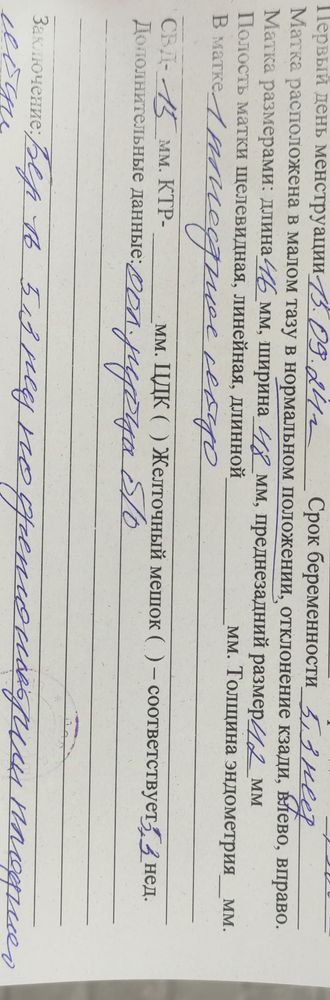 Первый день менструации 13.09.24г Срок беременности 5,3 нед
Матка расположена в малом тазу в нормальном положении, отклонение кзади, влево, вправо.
Матка размерами: длина 46 мм, ширина 48 мм, преднезадний размер 42 мм
Полость матки щелевидная, линейная, длинной мм. Толщина эндометрия мм.
В матке 1 плодное яйцо
СВД- 13 мм. КТР- мм. ЦДК ( ) Желточный мешок ( ) – соответствует 5,3 нед.
Дополнительные данные: б/о
Заключение: Бер-ть 5,3 нед по плодного
яйца